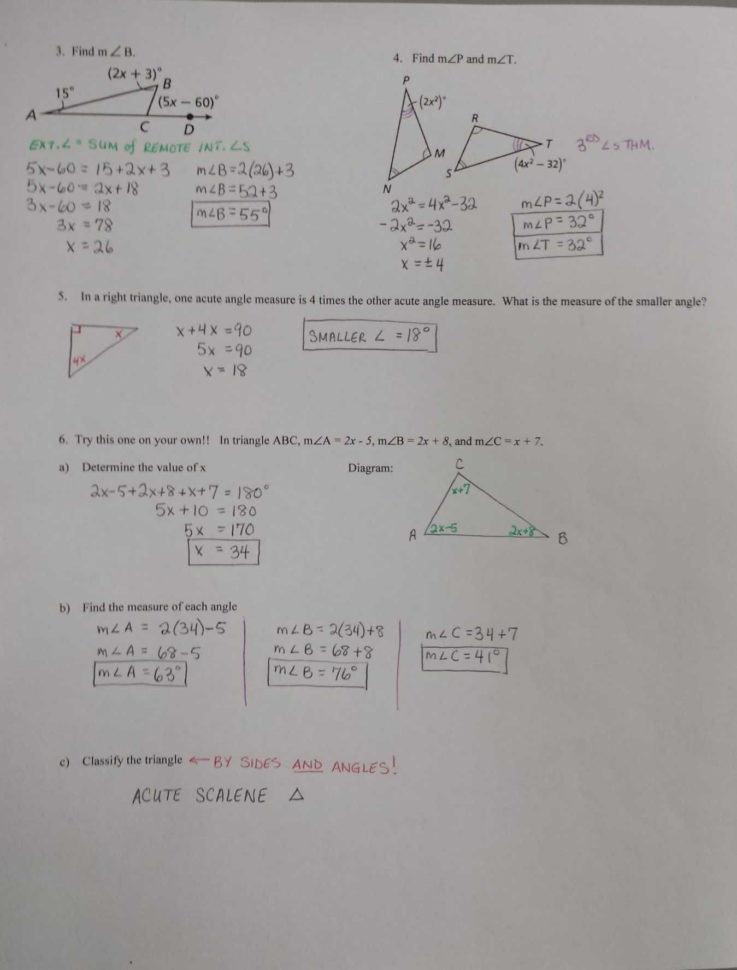 3. Find m∠B.
(2x + 3)°
15°
B
(5x – 60)°
A
C
D
EXT.∠ = SUM of REMOTE INT. ∠S
5x-60 = 15+2x+3
5x-60 = 2x+18
3x-60 = 18
3x = 78
x = 26
m∠B=2(26)+3
m∠B=52+3
m∠B=55°
4. Find m∠P and m∠T.
P
(2x²)°
M
N
R
S
T
(4x² – 32)°
3RD ∠S THM.
2x²=4x²-32
-2x²=-32
x²=16
x = ±4
m∠P=2(4)²
m∠P=32°
m∠T=32°
5. In a right triangle, one acute angle measure is 4 times the other acute angle measure. What is the measure of the smaller angle?
x
4x
x+4x=90
5x =90
x = 18
SMALLER ∠ = 18°
6. Try this one on your own!! In triangle ABC, m∠A = 2x - 5, m∠B = 2x + 8, and m∠C = x + 7.
a) Determine the value of x
Diagram:
2x-5+2x+8+x+7 = 180°
5x+10 = 180
5x = 170
x = 34
C
x+7
A
2x-5
2x+8
B
b) Find the measure of each angle
m∠A = 2(34)-5
m∠A = 68-5
m∠A = 63°
m∠B = 2(34)+8
m∠B = 68+8
m∠B = 76°
m∠C=34+7
m∠C=41°
c) Classify the triangle ← BY SIDES AND ANGLES!
ACUTE SCALENE △